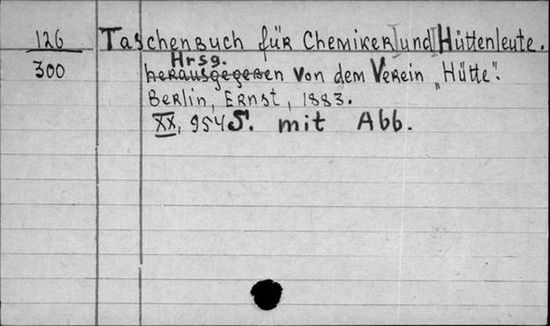 126 Taschenbuch für Chemiker und Hüttenleute.
Hrsg.
300 herausgegeben von dem Verein „Hütte".
Berlin, Ernst, 1883.
XX, 954 S. mit Abb.